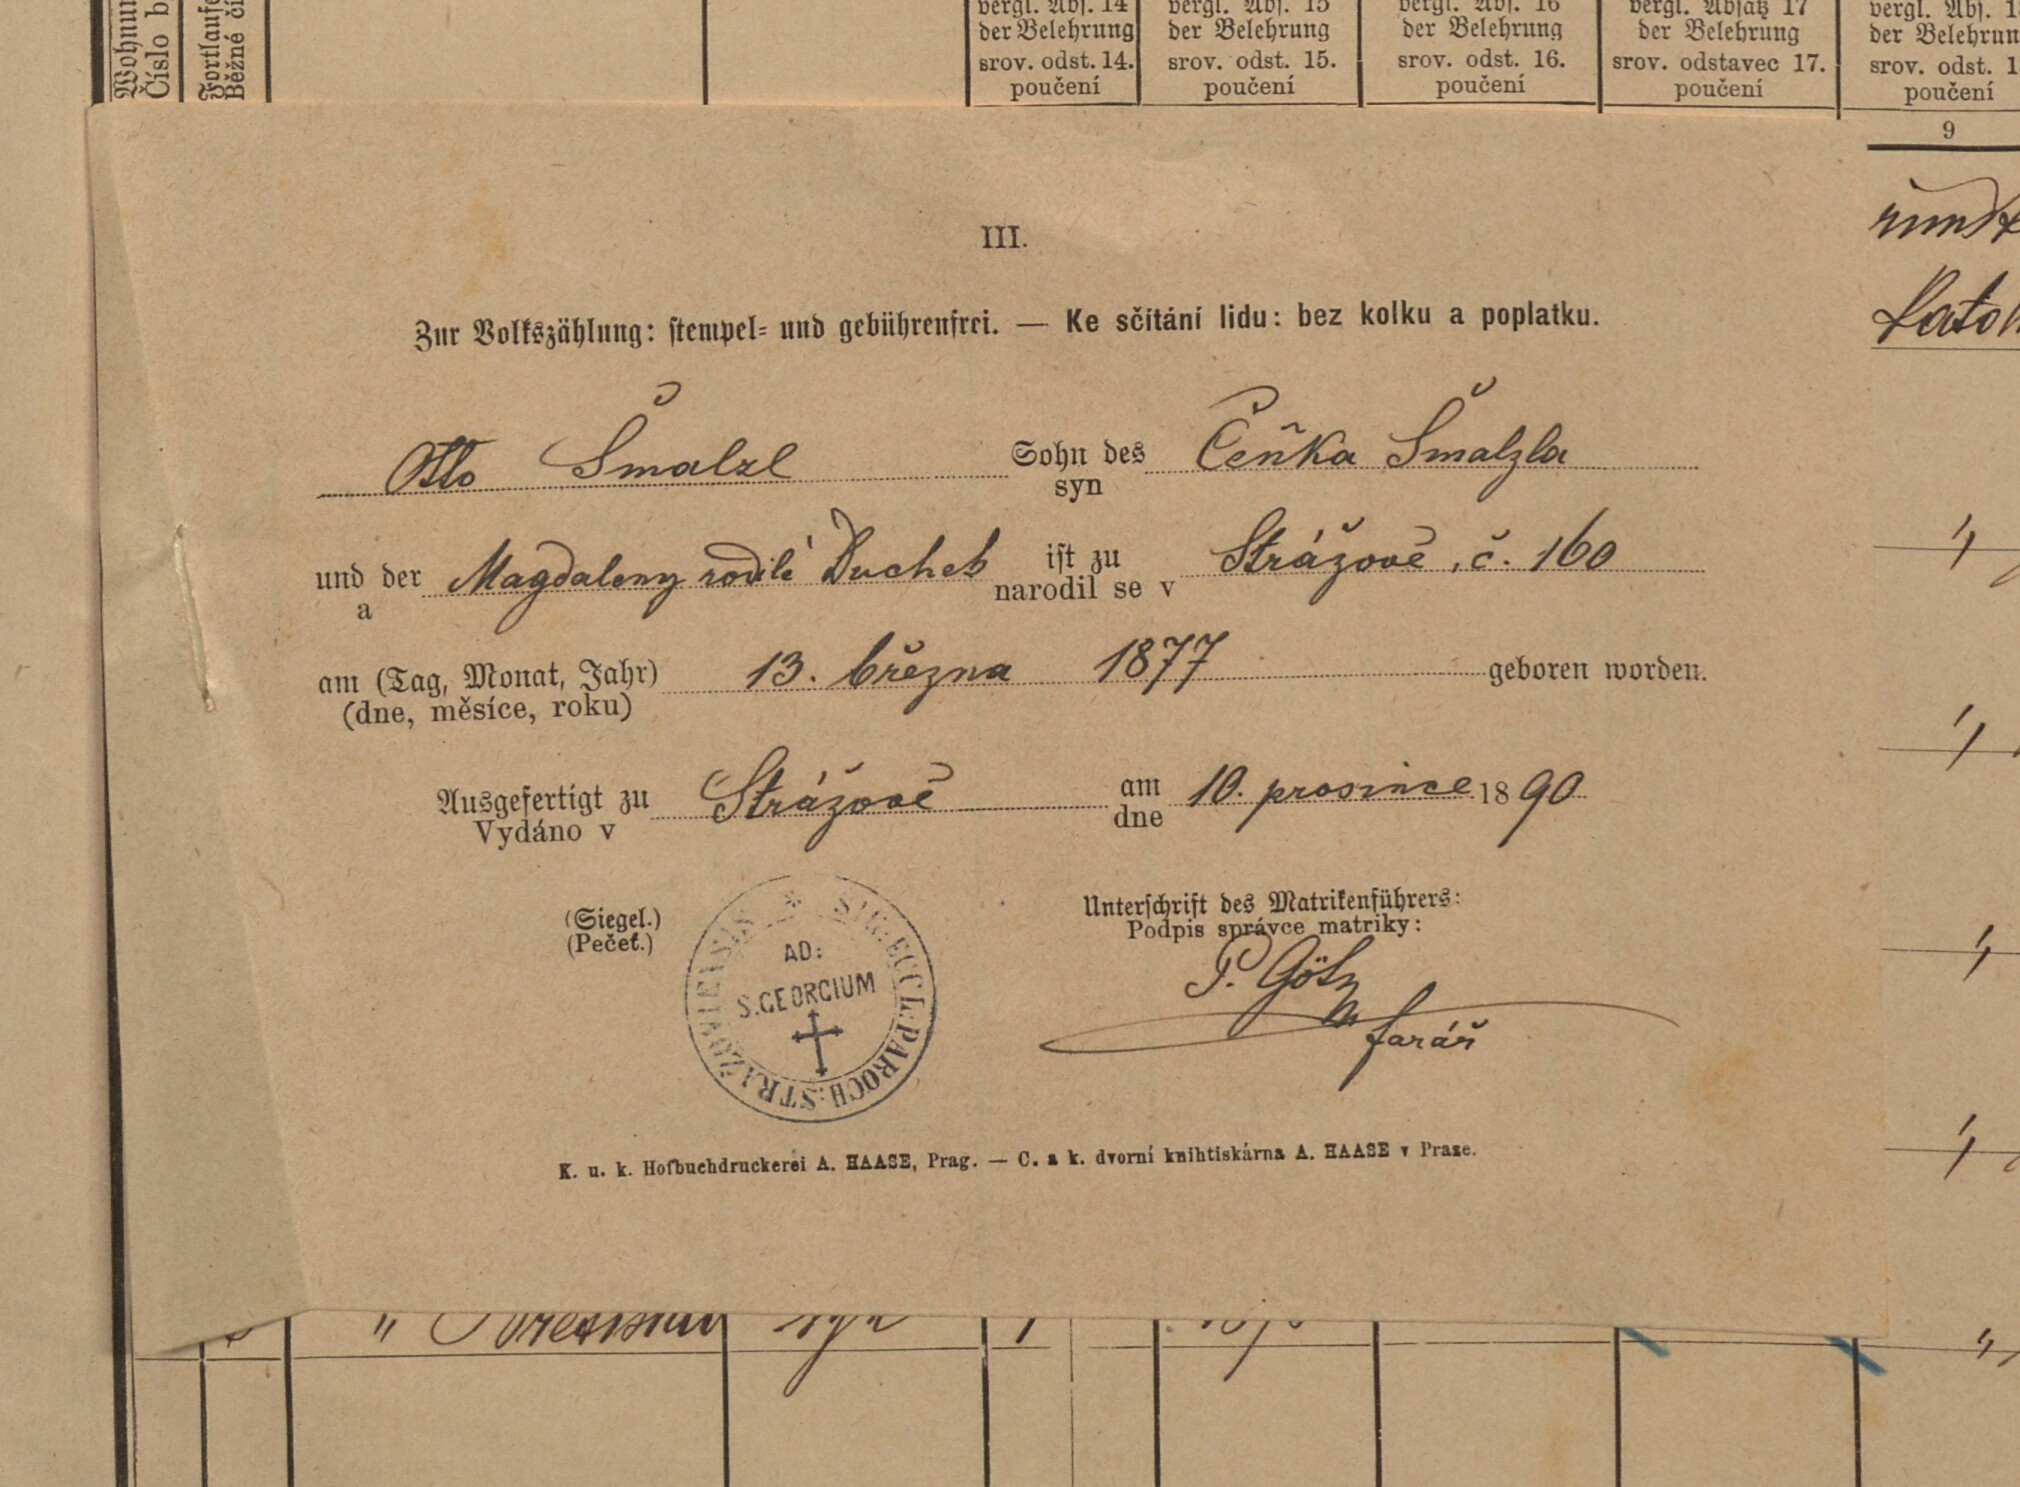 Wohnun
Číslo b
Fortlaufe
Běžné čí
vergl. Abs. 14
der Belehrung
srov. odst. 14.
poučení
vergl. Abs. 15
der Belehrung
srov. odst. 15.
poučení
vergl. Abs. 16
der Belehrung
srov. odst. 16.
poučení
vergl. Absatz 17
der Belehrung
srov. odstavec 17.
poučení
vergl. Abs. 1
der Belehrun
srov. odst. 1
poučení
9
III.
Zur Volkszählung: stempel- und gebührenfrei. — Ke sčítání lidu: bez kolku a poplatku.
Otto Šmalzl Sohn des Čeňka Šmalzla
syn
und der Magdaleny rodilé Duchek ist zu Strážově, č. 160
a narodil se v
am (Tag, Monat, Jahr) 13. března 1877 geboren worden.
(dne, měsíce, roku)
Ausgefertigt zu Strážově am 10. prosince 1890
Vydáno v dne
(Siegel.)
(Pečeť.)
SIG: ECCL: PAROCH: STRAŽOVIENSIS
AD:
S. GEORGIUM
Unterschrift des Matrikenführers:
Podpis správce matriky:
P. Götz
farář
K. u. k. Hofbuchdruckerei A. HAASE, Prag. — C. a k. dvorní knihtiskárna A. HAASE v Praze.